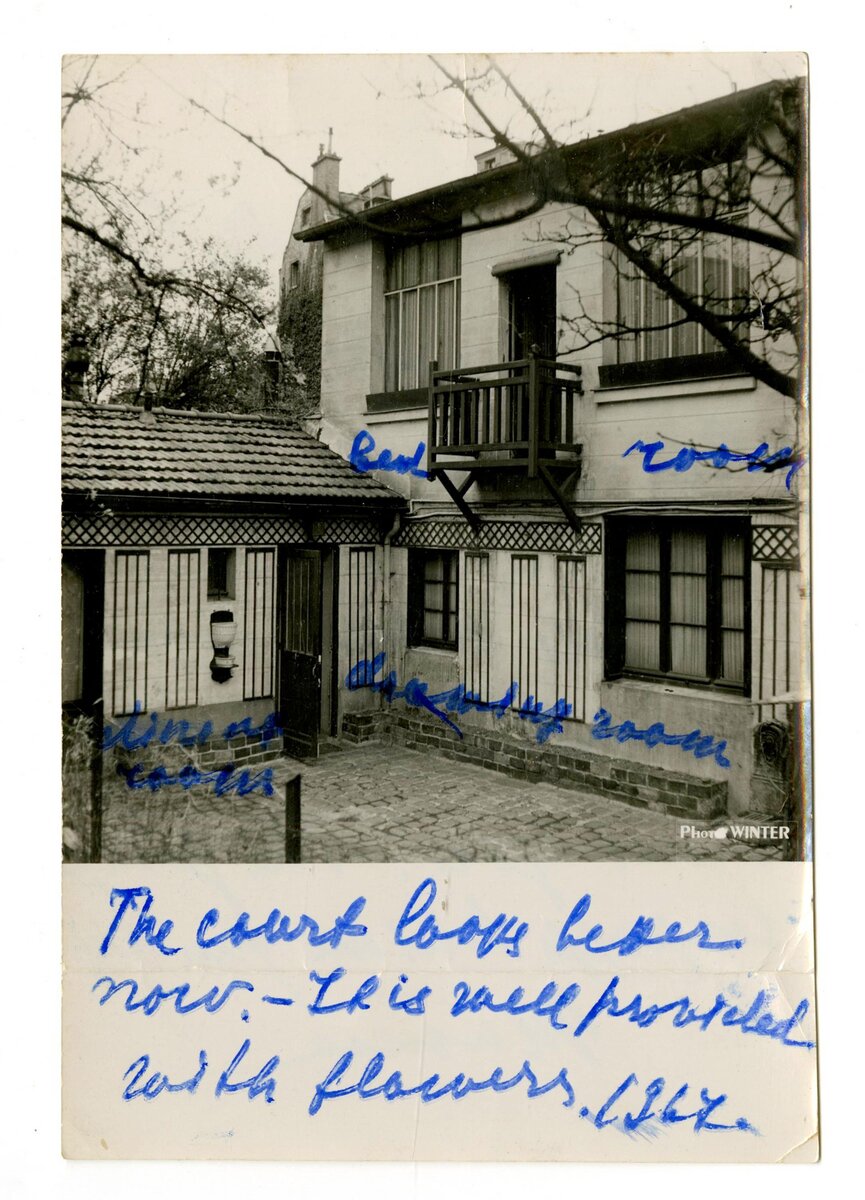 Bed room
drawing room
dining
room
Photo WINTER
The court looks better
now. – It is well provided
with flowers. 1967.